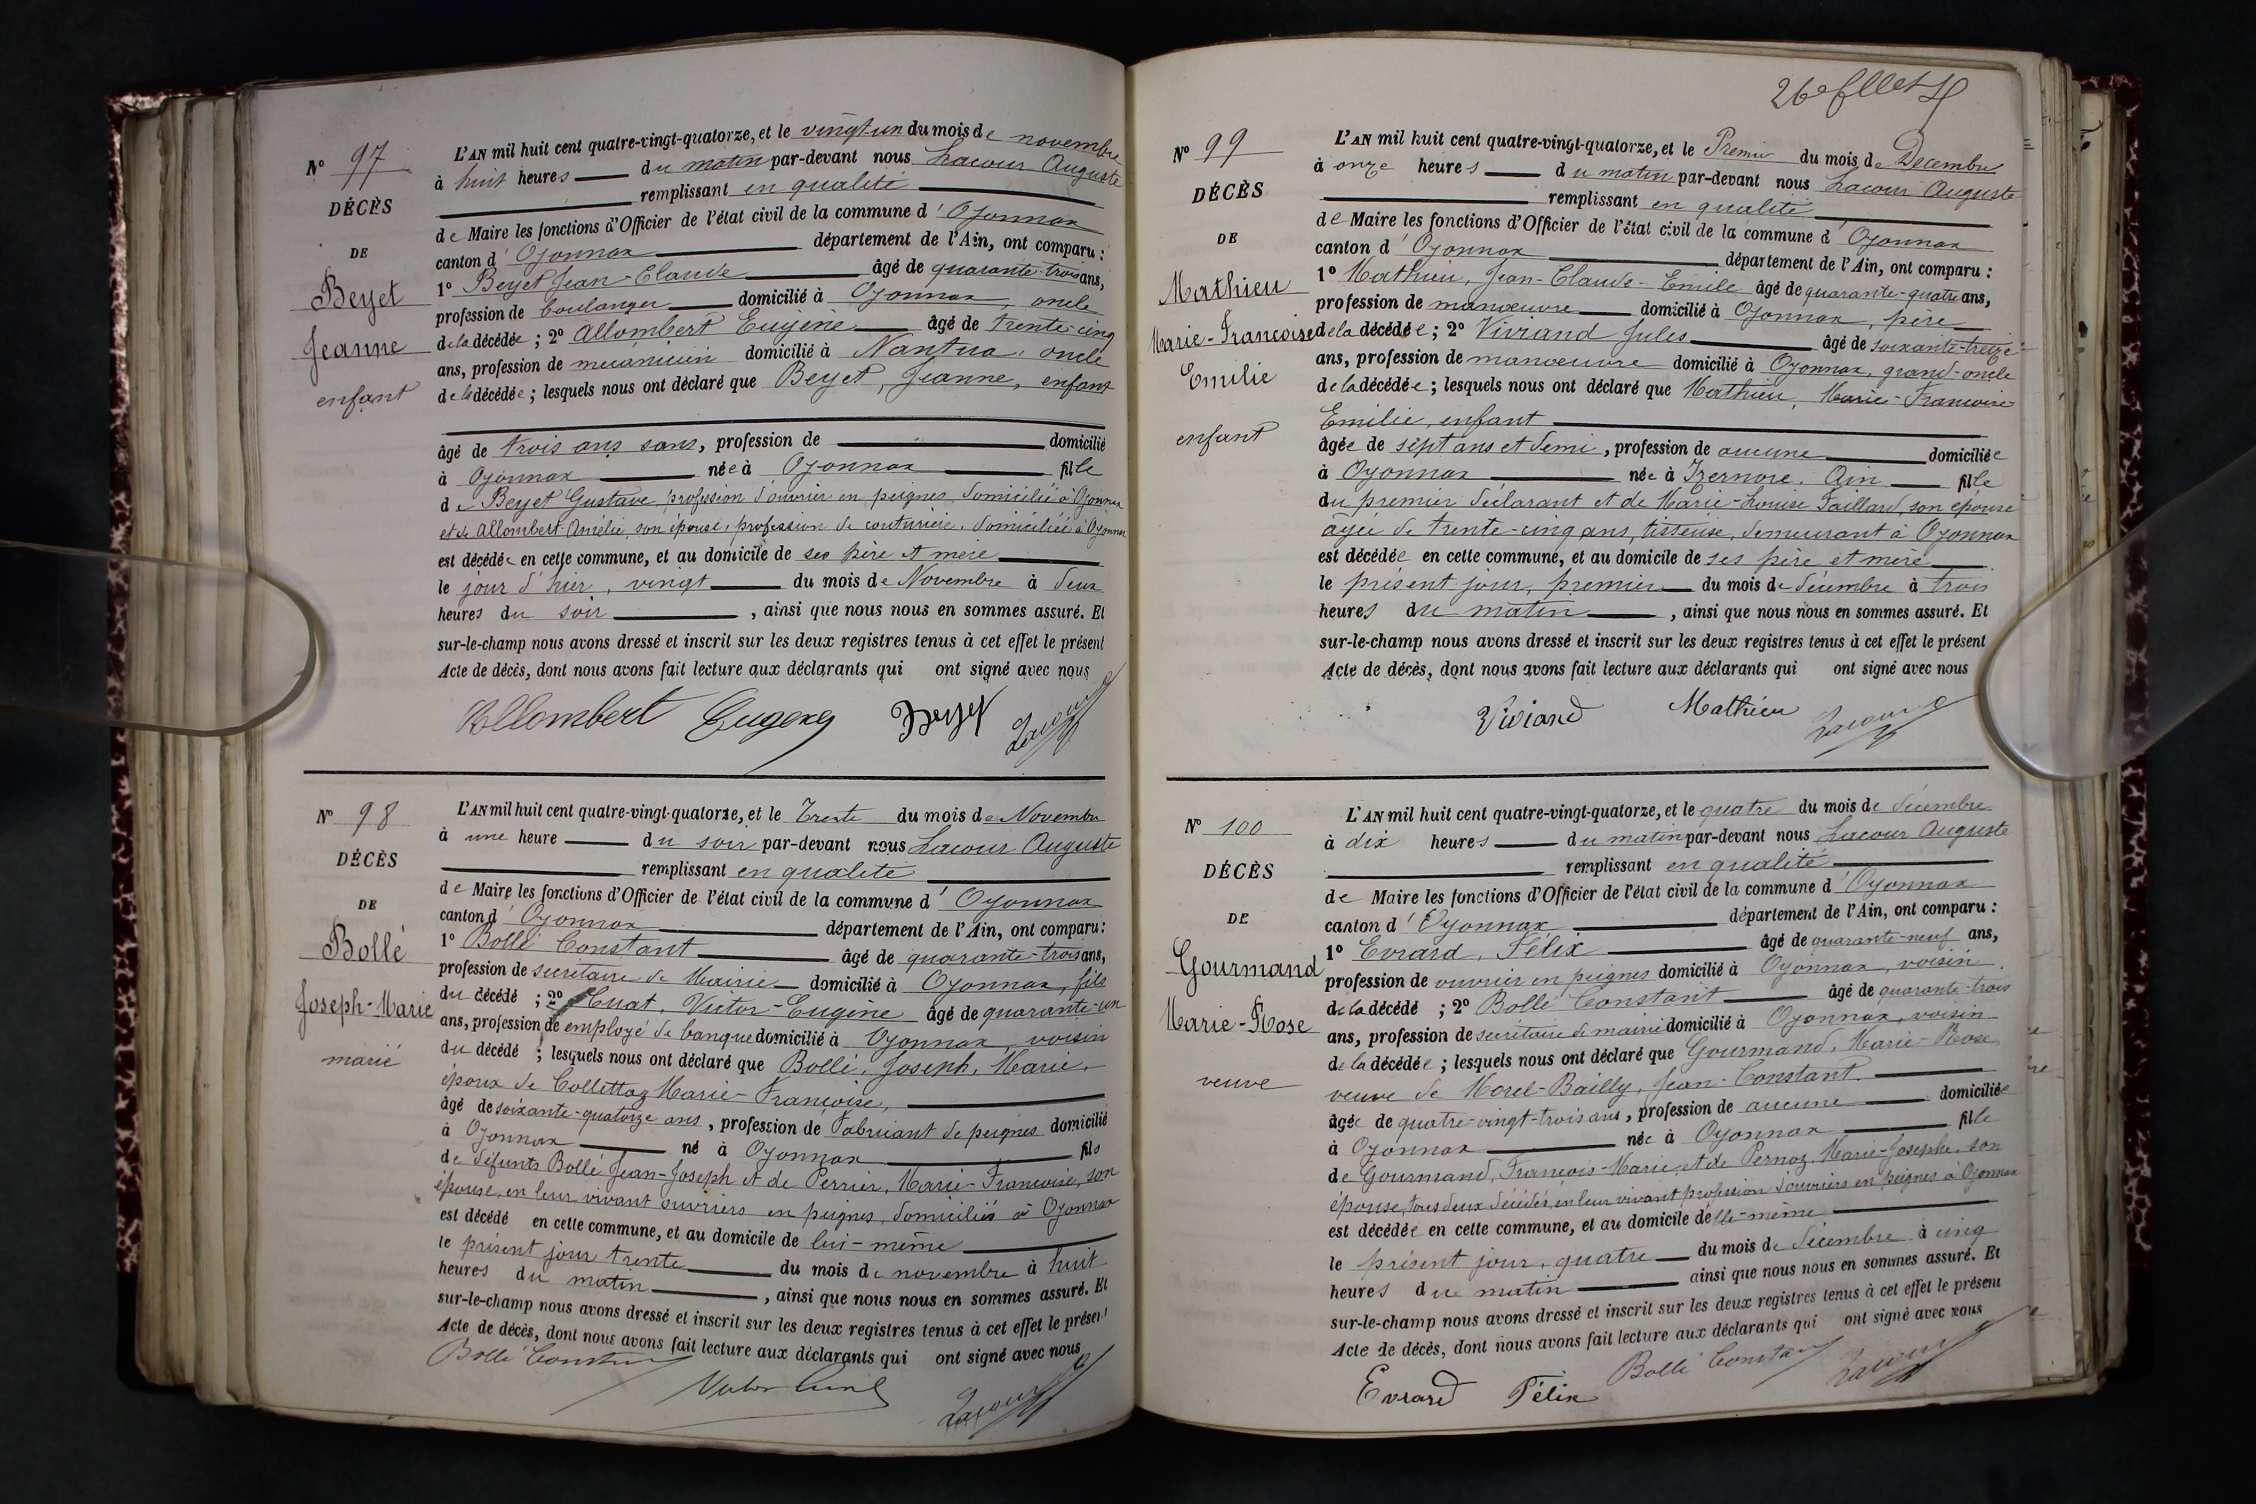 N° 97
DÉCÈS
DE
Beyet
Jeanne
enfant
L'AN mil huit cent quatre-vingt-quatorze, et le vingt-un du mois de novembre
à huit heures du matin par-devant nous Lacour Auguste
remplissant en qualité
de Maire les fonctions d'Officier de l'état civil de la commune d'Oyonnax
canton d'Oyonnax département de l'Ain, ont comparu :
1° Beyet Jean-Claude âgé de quarante-trois ans,
profession de boulanger domicilié à Oyonnax, oncle
de la décédée ; 2° Allombert Eugène âgé de trente-cinq
ans, profession de mécanicien domicilié à Nantua, oncle
de la décédée ; lesquels nous ont déclaré que Beyet, Jeanne, enfant
âgé de trois ans sans, profession de domicilié
à Oyonnax née à Oyonnax fille
de Beyet Gustave, profession d'ouvrier en peignes, domicilié à Oyonnax
et de Allombert Amélie, son épouse, profession de couturière, domiciliée à Oyonnax
est décédée en cette commune, et au domicile de ses père et mère
le jour d'hier, vingt du mois de Novembre à deux
heures du soir, ainsi que nous nous en sommes assuré. Et
sur-le-champ nous avons dressé et inscrit sur les deux registres tenus à cet effet le présent
Acte de décès, dont nous avons fait lecture aux déclarants qui ont signé avec nous
Allombert Eugène Beyet Lacour
N° 98
DÉCÈS
DE
Bollé
Joseph-Marie
marié
L'AN mil huit cent quatre-vingt-quatorze, et le Trente du mois de Novembre
à une heure du soir par-devant nous Lacour Auguste
remplissant en qualité
de Maire les fonctions d'Officier de l'état civil de la commune d'Oyonnax
canton d'Oyonnax département de l'Ain, ont comparu :
1° Bollé Constant âgé de quarante-trois ans,
profession de secrétaire de Mairie domicilié à Oyonnax, fils
du décédé ; 2° Cuat, Victor-Eugène âgé de quarante-un
ans, profession de employé de banque domicilié à Oyonnax, voisin
du décédé ; lesquels nous ont déclaré que Bollé, Joseph, Marie,
époux de Collettaz Marie-Françoise,
âgé de soixante-quatorze ans, profession de Fabricant de peignes domicilié
à Oyonnax né à Oyonnax fils
de défunts Bollé Jean-Joseph et de Perrier, Marie-Françoise, son
épouse, en leur vivant ouvriers en peignes, domiciliés à Oyonnax
est décédé en cette commune, et au domicile de lui-même
le présent jour trente du mois de novembre à huit
heures du matin, ainsi que nous nous en sommes assuré. Et
sur-le-champ nous avons dressé et inscrit sur les deux registres tenus à cet effet le présent
Acte de décès, dont nous avons fait lecture aux déclarants qui ont signé avec nous
Bollé Constant
Victor Cuat Lacour
N° 99
DÉCÈS
DE
Mathieu
Marie-Françoise
Emilie
enfant
L'AN mil huit cent quatre-vingt-quatorze, et le Premier du mois de Decembre
à onze heures du matin par-devant nous Lacour Auguste
remplissant en qualité
de Maire les fonctions d'Officier de l'état civil de la commune d'Oyonnax
canton d'Oyonnax département de l'Ain, ont comparu :
1° Mathieu, Jean-Claude-Emile âgé de quarante-quatre ans,
profession de manœuvre domicilié à Oyonnax, père
de la décédée ; 2° Viviand Jules âgé de soixante-treize
ans, profession de manœuvre domicilié à Oyonnax, grand-oncle
de la décédée ; lesquels nous ont déclaré que Mathieu, Marie-Françoise
Emilie, enfant
âgée de sept ans et demi, profession de aucune domiciliée
à Oyonnax née à Izernore, Ain fille
du premier déclarant et de Marie-Louise Taillard, son épouse
âgée de trente-cinq ans, tisseuse, demeurant à Oyonnax
est décédée en cette commune, et au domicile de ses père et mère
le présent jour, premier du mois de décembre à trois
heures du matin, ainsi que nous nous en sommes assuré. Et
sur-le-champ nous avons dressé et inscrit sur les deux registres tenus à cet effet le présent
Acte de décès, dont nous avons fait lecture aux déclarants qui ont signé avec nous
Viviand Mathieu Lacour
N° 100
DÉCÈS
DE
Gourmand
Marie-Rose
veuve
L'AN mil huit cent quatre-vingt-quatorze, et le quatre du mois de décembre
à dix heures du matin par-devant nous Lacour Auguste
remplissant en qualité
de Maire les fonctions d'Officier de l'état civil de la commune d'Oyonnax
canton d'Oyonnax département de l'Ain, ont comparu :
1° Evrard, Félix âgé de quarante-neuf ans,
profession de ouvrier en peignes domicilié à Oyonnax, voisin
de la décédé ; 2° Bollé Constant âgé de quarante-trois
ans, profession de secrétaire de mairie domicilié à Oyonnax, voisin
de la décédée ; lesquels nous ont déclaré que Gourmand, Marie-Rose
veuve de Morel-Bailly, Jean-Constant,
âgée de quatre-vingt-trois ans, profession de aucune domiciliée
à Oyonnax née à Oyonnax fille
de Gourmand, François-Marie, et de Pernoz, Marie-Josephe, son
épouse, tous deux décédés, en leur vivant profession d'ouvriers en peignes à Oyonnax
est décédée en cette commune, et au domicile d'elle-même
le présent jour, quatre du mois de décembre à cinq
heures du matin ainsi que nous nous en sommes assuré. Et
sur-le-champ nous avons dressé et inscrit sur les deux registres tenus à cet effet le présent
Acte de décès, dont nous avons fait lecture aux déclarants qui ont signé avec nous
Evrard Félix Bollé Constant Lacour